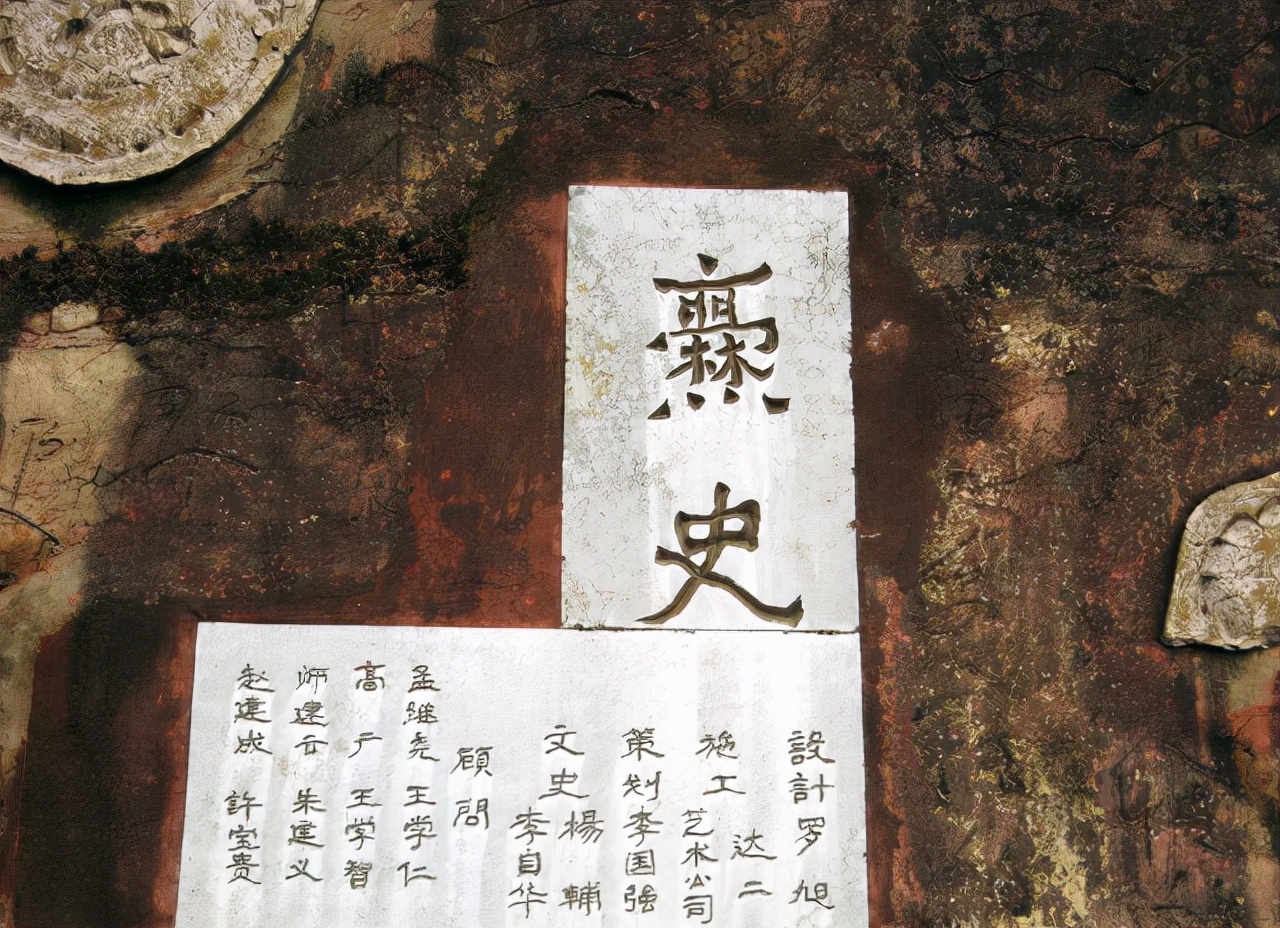 爨史
設計 罗旭
施工 达二
艺术公司
策划 李国强
文史 楊輔
李自华
顾问
孟継尧 王学仁
高广 王学智
师建云 朱建义
赵建成 許宝贵